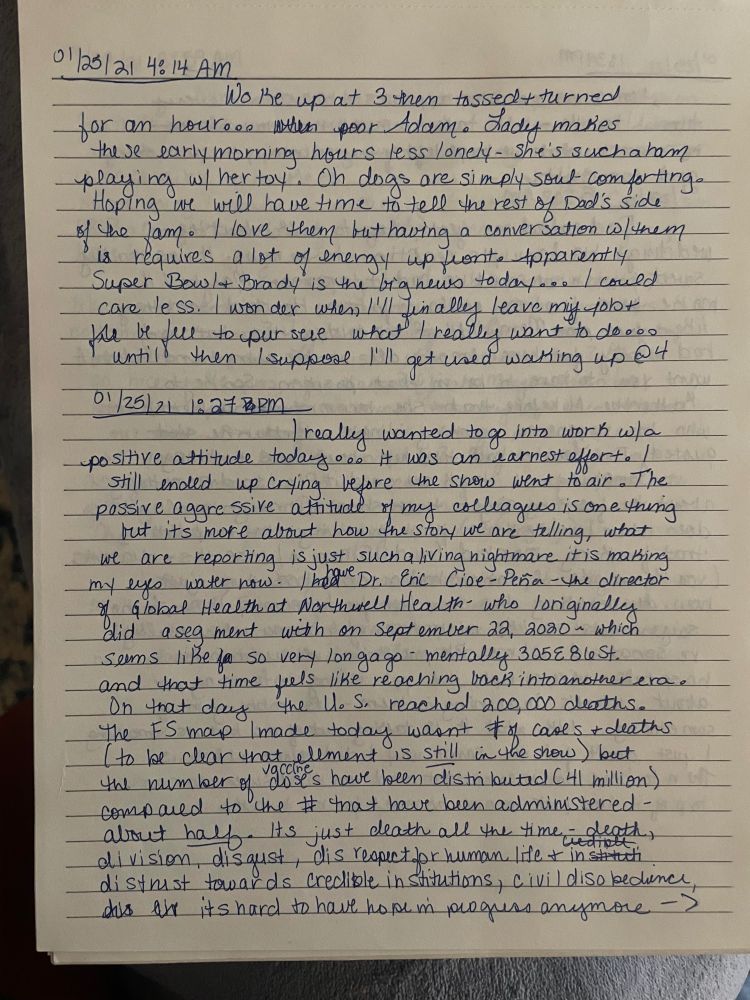 01/25/21 4:14 AM
Woke up at 3 then tossed + turned
for an hour... when poor Adam. Lady makes
these early morning hours less lonely - She's such a ham
playing w/ her toy. Oh dogs are simply soul comforting.
Hoping we will have time to tell the rest of Dad's side
of the fam. I love them but having a conversation w/ them
is requires a lot of energy up front. Apparently
Super Bowl + Brady is the big news today... I could
care less. I wonder when I'll finally leave my job +
be free to pursue what I really want to do....
until then I suppose I'll get used waking up @ 4
01/25/21 1:27 PM
I really wanted to go into work w/ a
positive attitude today... it was an earnest effort. I
still ended up crying before the show went to air. The
passive aggressive attitude of my colleagues is one thing
but its more about how the story we are telling, what
we are reporting is just such a living nightmare it is making
my eyes water now. I had have Dr. Eric Cioe-Peña - the director
of Global Health at Northwell Health - who I originally
did a segment with on September 22, 2020 - which
seems like so very long ago - mentally 305 E 86 St.
and that time feels like reaching back into another era.
On that day the U.S. reached 200,000 deaths.
The FS map I made today wasnt # of cases + deaths
(to be clear that element is still in the show) but
the number of vaccine doses have been distributed (41 million)
compared to the # that have been administered -
about half. Its just death all the time - death,
division, disgust, disrespect for human life + credible
distrust towards credible institutions, civil disobedience,
its hard to have hope in progress anymore ->